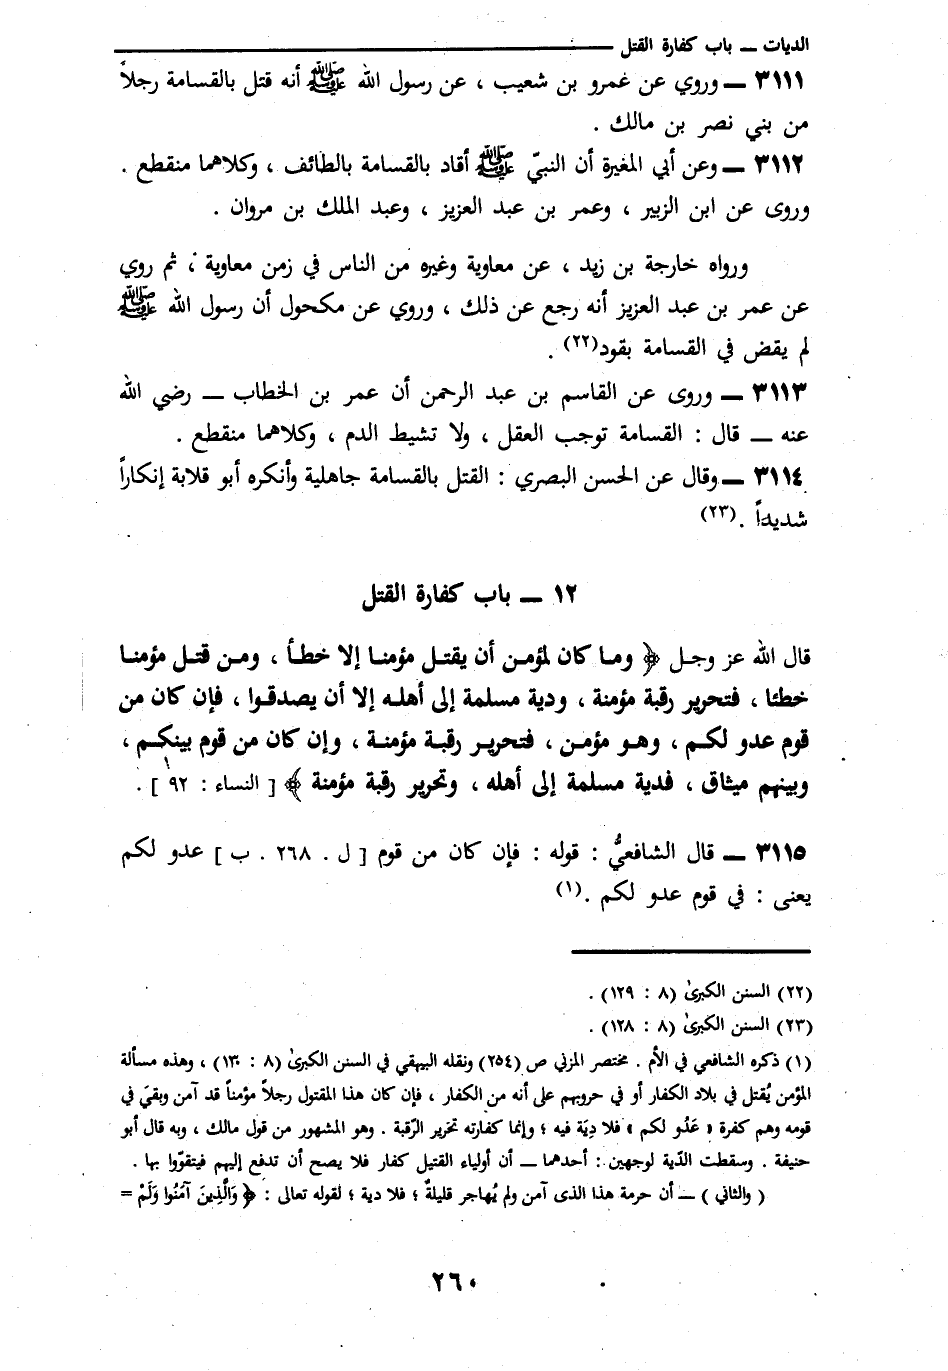 الديات ــ باب كفارة القتل
٣١١١ ــ وروي عن عمرو بن شعيب ، عن رسول الله ﷺ أنه قتل بالقسامة رجلاً
من بني نصر بن مالك .
٣١١٢ ــ وعن أبي المغيرة أن النبيّ ﷺ أقاد بالقسامة بالطائف ، وكلاهما منقطع .
وروى عن ابن الزبير ، وعمر بن عبد العزيز ، وعبد الملك بن مروان .
ورواه خارجة بن زيد ، عن معاوية وغيره من الناس في زمن معاوية ، ثم روي
عن عمر بن عبد العزيز أنه رجع عن ذلك ، وروي عن مكحول أن رسول الله ﷺ
لم يقض في القسامة بقود(٢٢) .
٣١١٣ ــ وروى عن القاسم بن عبد الرحمن أن عمر بن الخطاب ــ رضي الله
عنه ــ قال : القسامة توجب العقل ، ولا تشيط الدم ، وكلاهما منقطع .
٣١١٤ ــ وقال عن الحسن البصري : القتل بالقسامة جاهلية وأنكره أبو قلابة إنكاراً
شديداً .(٢٣)
١٢ ــ باب كفارة القتل
قال الله عز وجل ﴿ وما كان لمؤمن أن يقتل مؤمنا إلا خطأ ، ومن قتل مؤمنا
خطئا ، فتحرير رقبة مؤمنة ، ودية مسلمة إلى أهله إلا أن يصدقوا ، فإن كان من
قوم عدو لكم ، وهو مؤمن ، فتحرير رقبة مؤمنة ، وإن كان من قوم بينكم ،
وبينهم ميثاق ، فدية مسلمة إلى أهله ، وتحرير رقبة مؤمنة ﴾ [ النساء : ٩٢ ] .
٣١١٥ ــ قال الشافعيُّ : قوله : فإن كان من قوم [ ل . ٢٦٨ . ب ] عدو لكم
يعنى : في قوم عدو لكم .(١)
(٢٢) السنن الكبرىٰ (٨ : ١٢٩) .
(٢٣) السنن الكبرىٰ (٨ : ١٢٨) .
(١) ذكره الشافعي في الأم . مختصر المزني ص (٢٥٤) ونقله البيهقي في السنن الكبرىٰ (٨ : ١٣٠) ، وهذه مسألة
المؤمن يُقتل في بلاد الكفار أو في حروبهم على أنه من الكفار ، فإن كان هذا المقتول رجلاً مؤمناً قد آمن وبقيَ في
قومه وهم كفرة « عَدُو لكم » فلا دِيَة فيه ؛ وإنما كفارته تحرير الرّقبة . وهو المشهور من قول مالك ، وبه قال أبو
حنيفة . وسقطت الدّية لوجهين : أحدهما ــ أن أولياء القتيل كفار فلا يصح أن تدفع إليهم فيتقوّوا بها .
( والثاني ) ــ أن حرمة هذا الذى آمن ولم يُهاجر قليلةٌ ؛ فلا دية ؛ لقوله تعالى : ﴿ وَالَّذِينَ آمَنُوا وَلَمْ =
٢٦٠